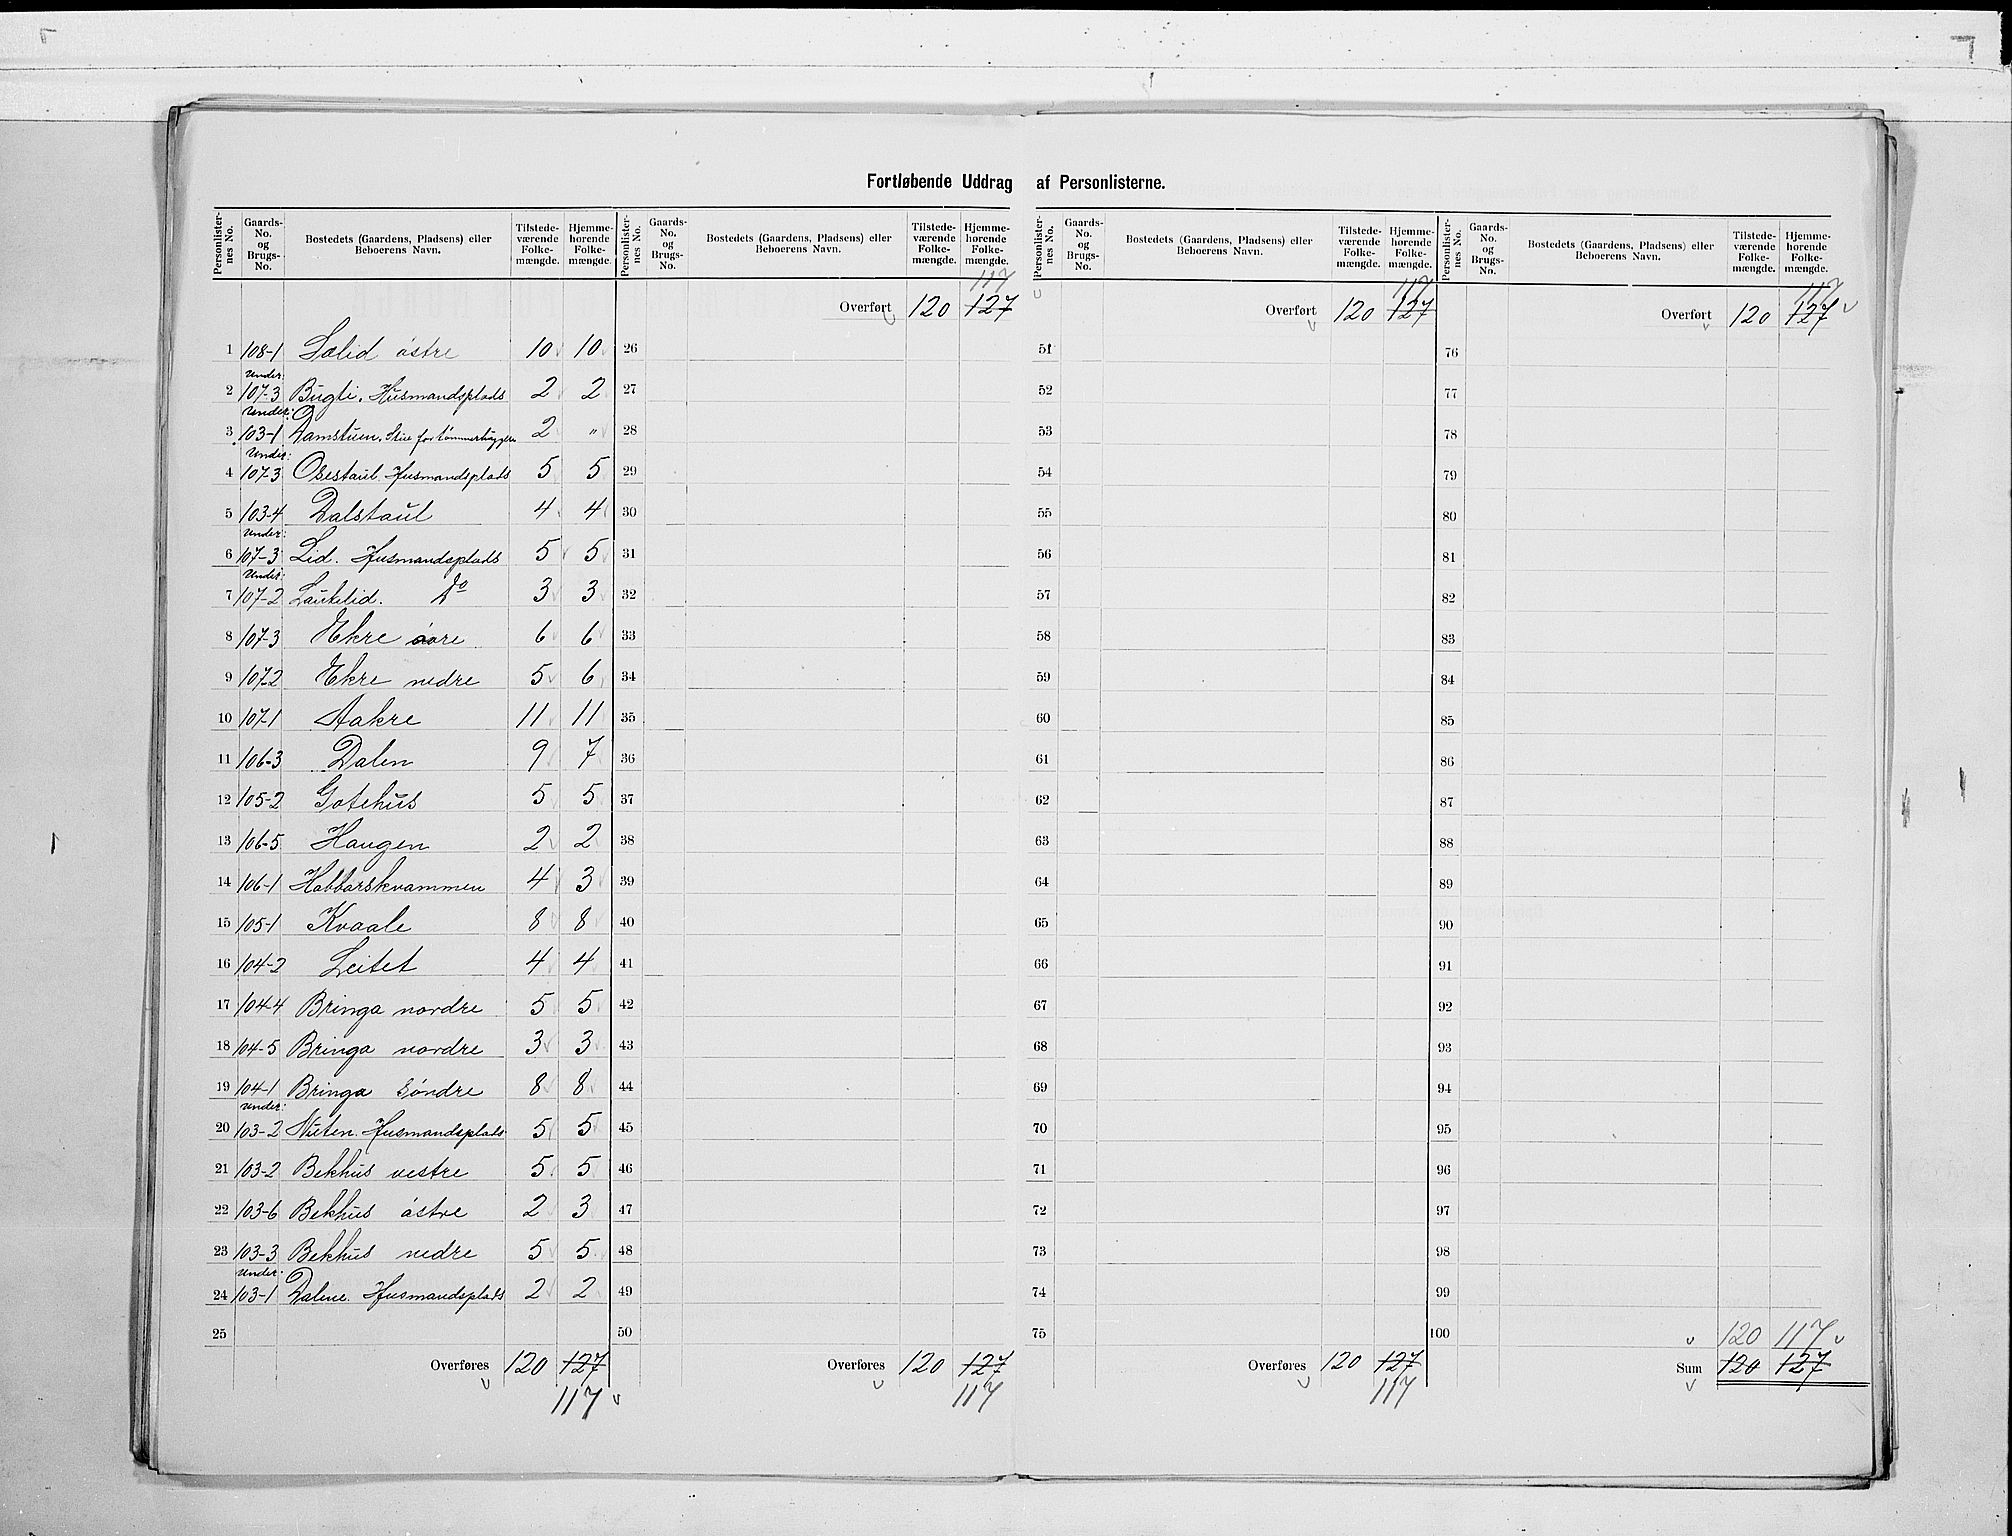 Fortløbende Uddrag af Personlisterne.
Personlister-nes No. Gaards-No. og Brugs-No. Bostedets (Gaardens, Pladsens) eller Beboerens Navn. Tilstede-værende Folke-mængde. Hjemme-hørende Folke-mængde.
1 108-1 Lølid østre 10 10
Under:
2 107-3 Bugti. Husmandsplads 2 2
Under:
3 103-1 Damstuen. Stue for tømmerhuggere 2 "
Under:
4 107-3 Osestaul. Husmandsplads 5 5
5 103-4 Dalstaul 4 4
Under:
6 107-3 Lid. Husmandsplads 5 5
Under:
7 107-2 Laukelid. Do 3 3
8 107-3 Ekre øvre 6 6
9 107-2 Ekre nedre 5 6
10 107-1 Aakre 11 11
11 106-3 Dalen 9 7
12 105-2 Gotehus 5 5
13 106-5 Haugen 2 2
14 106-1 Habbarskvammen 4 3
15 105-1 Kvaale 8 8
16 104-2 Leitet 4 4
17 104-4 Bringa nordre 5 5
18 104-5 Bringa nordre 3 3
19 104-1 Bringa søndre 8 8
Under:
20 103-2 Nuten. Husmandsplads 5 5
21 103-2 Bekhus vestre 5 5
22 103-6 Bekhus østre 2 3
23 103-3 Bekhus nedre 5 5
Under:
24 103-1 Dalene. Husmandsplads 2 2
25
Overføres 120 127
117
Personlister-nes No. Gaards-No. og Brugs-No. Bostedets (Gaardens, Pladsens) eller Beboerens Navn. Tilstede-værende Folke-mængde. Hjemme-hørende Folke-mængde.
117
Overført 120 127
26
27
28
29
30
31
32
33
34
35
36
37
38
39
40
41
42
43
44
45
46
47
48
49
50
Overføres 120 127
117
Personlister-nes No. Gaards-No. og Brugs-No. Bostedets (Gaardens, Pladsens) eller Beboerens Navn. Tilstede-værende Folke-mængde. Hjemme-hørende Folke-mængde.
117
Overført 120 127
51
52
53
54
55
56
57
58
59
60
61
62
63
64
65
66
67
68
69
70
71
72
73
74
75
Overføres 120 127
117
Personlister-nes No. Gaards-No. og Brugs-No. Bostedets (Gaardens, Pladsens) eller Beboerens Navn. Tilstede-værende Folke-mængde. Hjemme-hørende Folke-mængde.
117
Overført 120 127
76
77
78
79
80
81
82
83
84
85
86
87
88
89
90
91
92
93
94
95
96
97
98
99
100 120 117
Sum 120 127